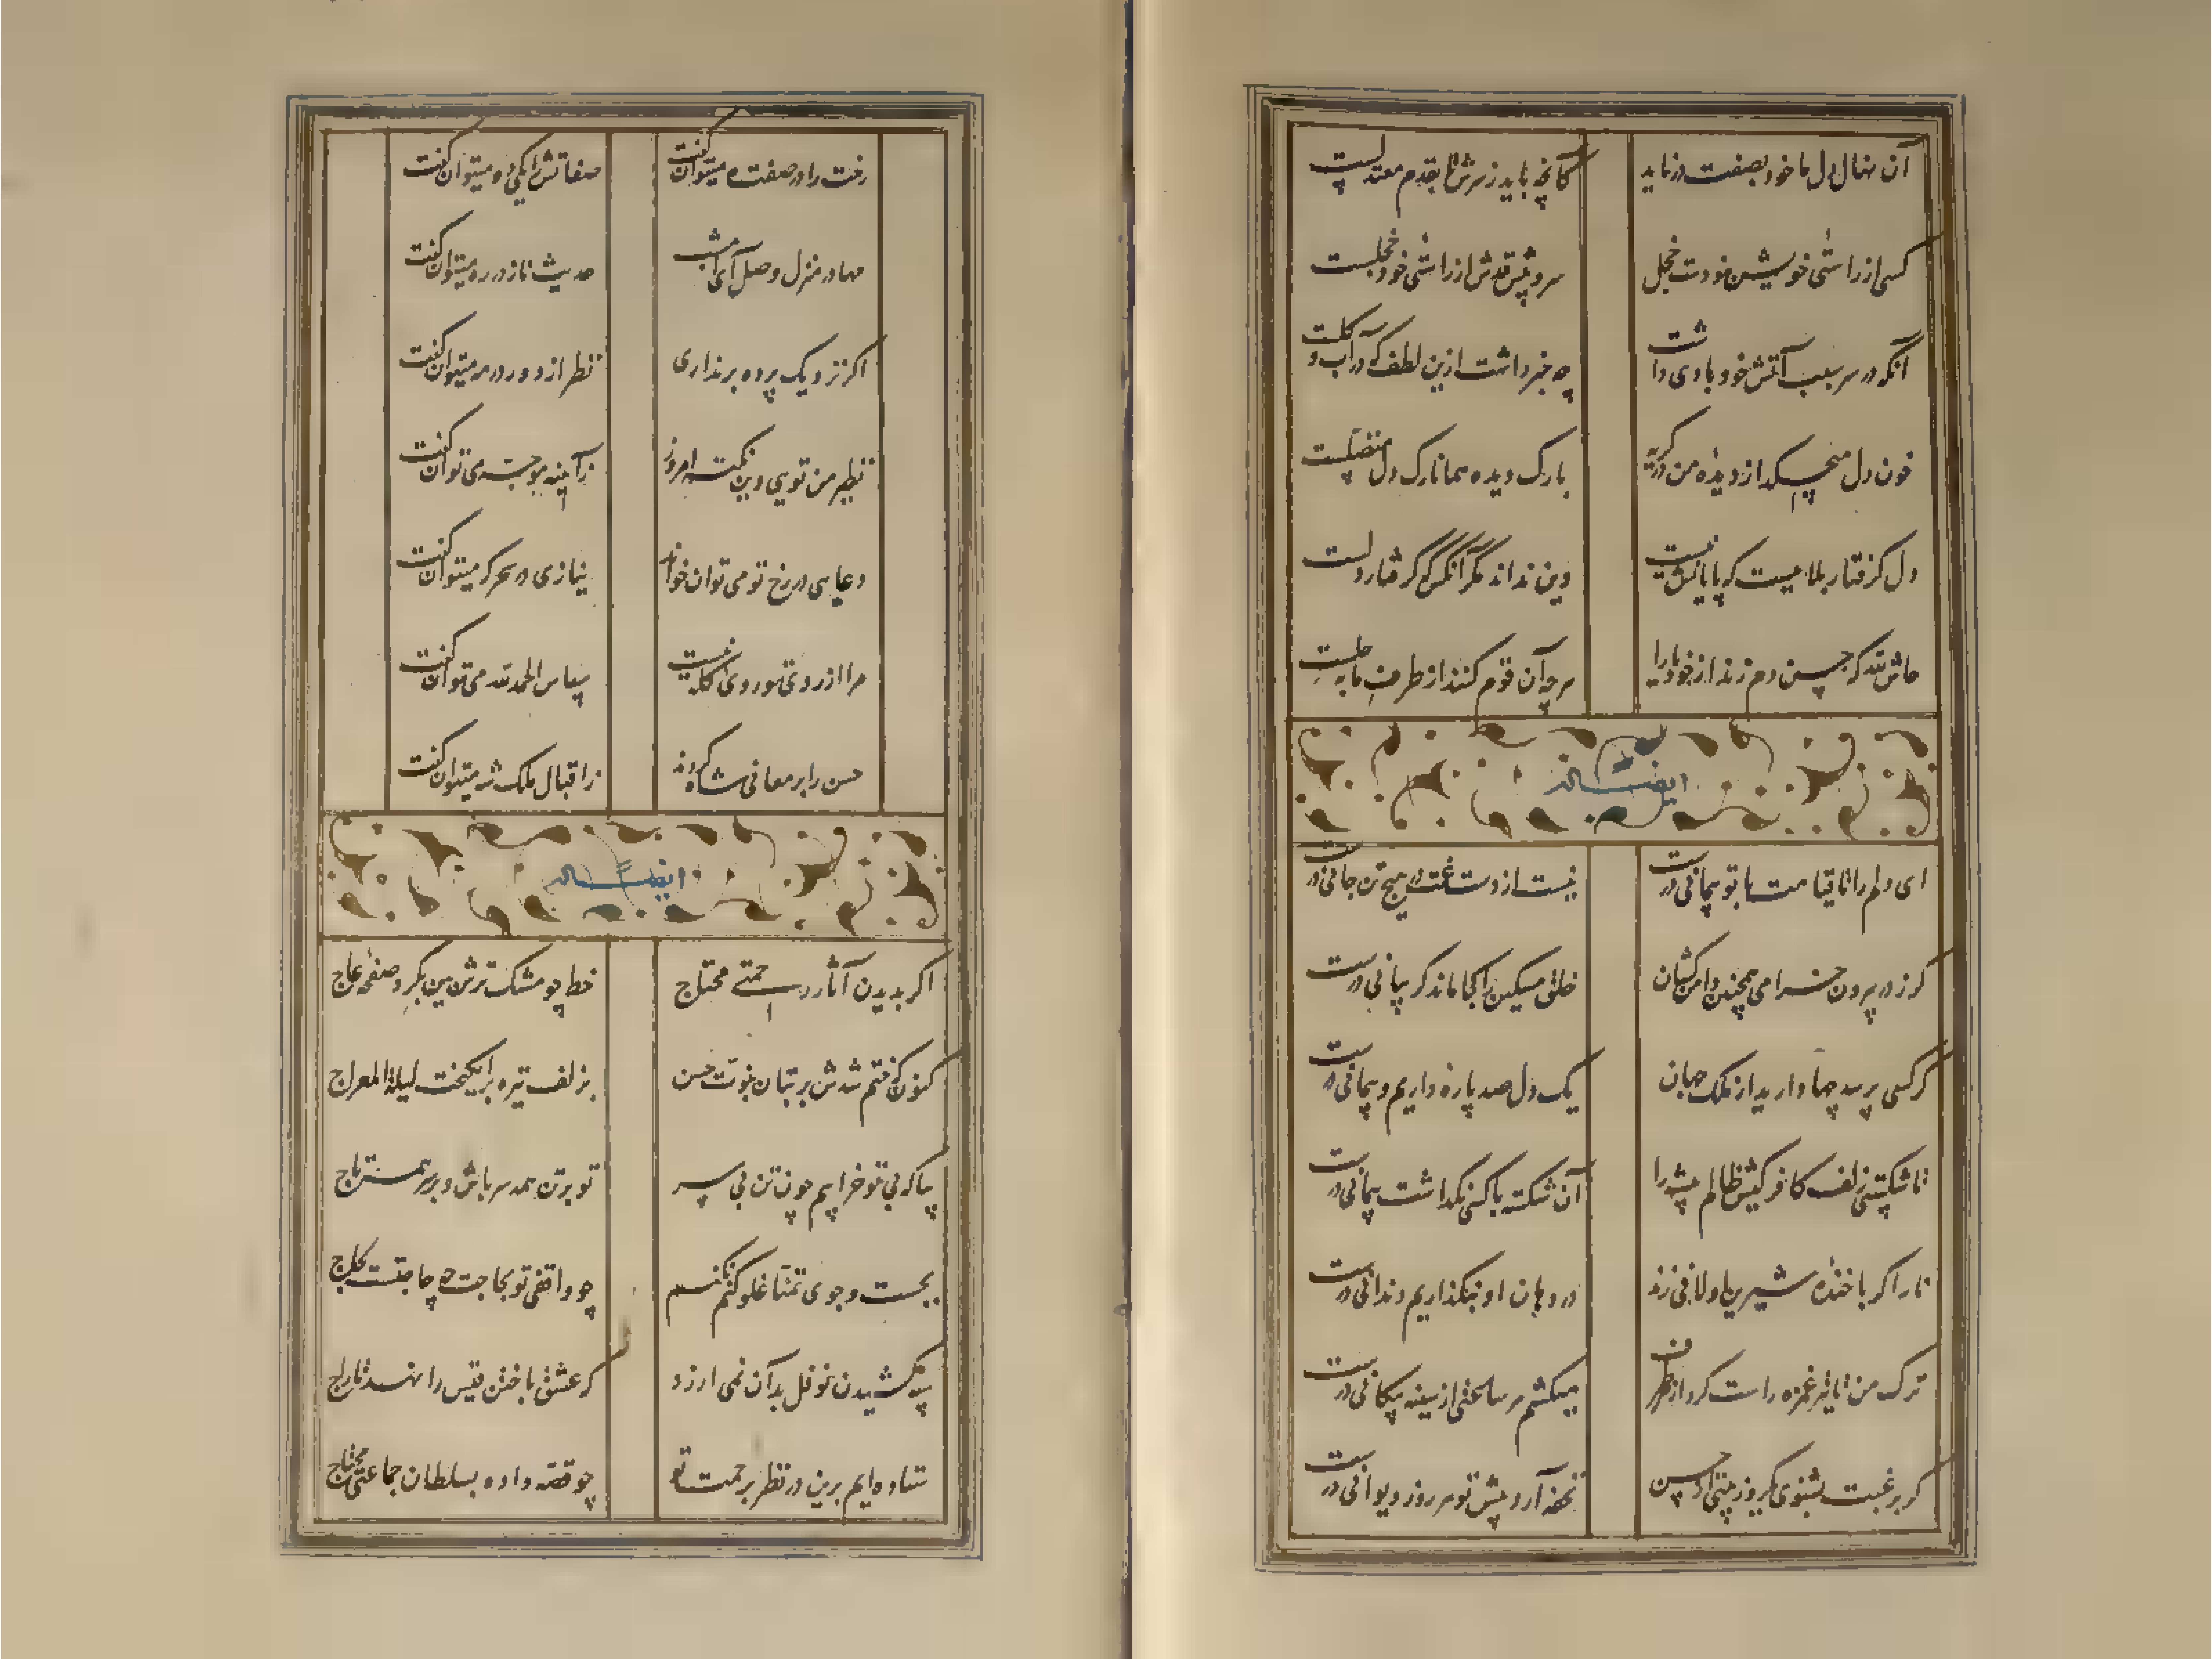 آن نهال دل ما خود بصفت در ناید
کانچه باید ز سرش تا بقدم معتدلست
کسی از راستی خویشتن نبودست خجل
سرو پیش قدش از راستی خود خجلست
آنکه در سر سبب آتش خود بادی داشت
چه خبر داشت ازین لطف که در آب و گلست
خون دل میچکد از دیده من در گریه
بارک دیده همانا رک دل متصلست
دل گرفتار بلاییست که پایانش نیست
وین نداند مگر آنکس که گرفتار دلست
حاش لله که حسن دم زند از خود یارا
هر چه آن قوم کنند از طرف ما بحلست
ایضا له
ای دلم را تا قیامت با تو پیمانی درست
نیست از دست غمت در هیچ تن جانی درست
گر ز در بیرون خرامی همچنین دامن کشان
خلق مسکین را کجا ماند گریبانی درست
گر کسی پرسد چها دارید از ملک جهان
یک دل صد پاره داریم و پیمانی درست
تا شکستی زلف کافر کیش ظالم پیشه را
آن شکسته با کسی نگذاشت پیمانی درست
نار اگر با خنده شیرین او لافی زند
در دهان او بنگذاریم دندانی درست
ترک من تا تیر غمزه راست کرد از هر طرف
میکشم هر ساعتی از سینه پیکانی درست
گر برغبت بشنوی هر روز بیتی از حسن
تحفه آرد پیش تو هر روز دیوانی درست
رخت را در صفت مه میتوان گفت
صفاتش را یکی ده میتوان گفت
مها در منزل وصل آی امشب
حدیث ناز در ره میتوان گفت
اگر نزدیک پرده بر نداری
نظر از دور در مه میتوان گفت
نظیر من تویی وین نکته امروز
ز آیینه موجه می توان گفت
دعایی در رخ تو می توان خواند
نیازی در سحرگه میتوان گفت
مرا از روی تو روی گله نیست
سپاس الحمد لله می توان گفت
حسن را بر معانی شاه کردند
ز اقبال ملک شه میتوان گفت
ایضا له
اگر بدیدن آثار رحمتی محتاج
خط چو مشک ترش بین بگرد صفحه عاج
کنون که ختم شدش بر بتان نبوت حسن
بزلف تیره برانگیخت لیلة المعراج
بیا که بی تو خرابیم چون تن بی سر
تو بر تن همه سر باش و بر سر همه تاج
بجست و جوی تمنا غلو کنم نکنم
چو واقفی تو بحاجت چه حاجتست بحاج
پدید کشیدن نوفل بدان نمی ارزد
که عشق باختن قیس را نهد تاراج
ستاده ایم برین در نظر برحمت تو
چو قصه داده بسلطان جماعتی محتاج